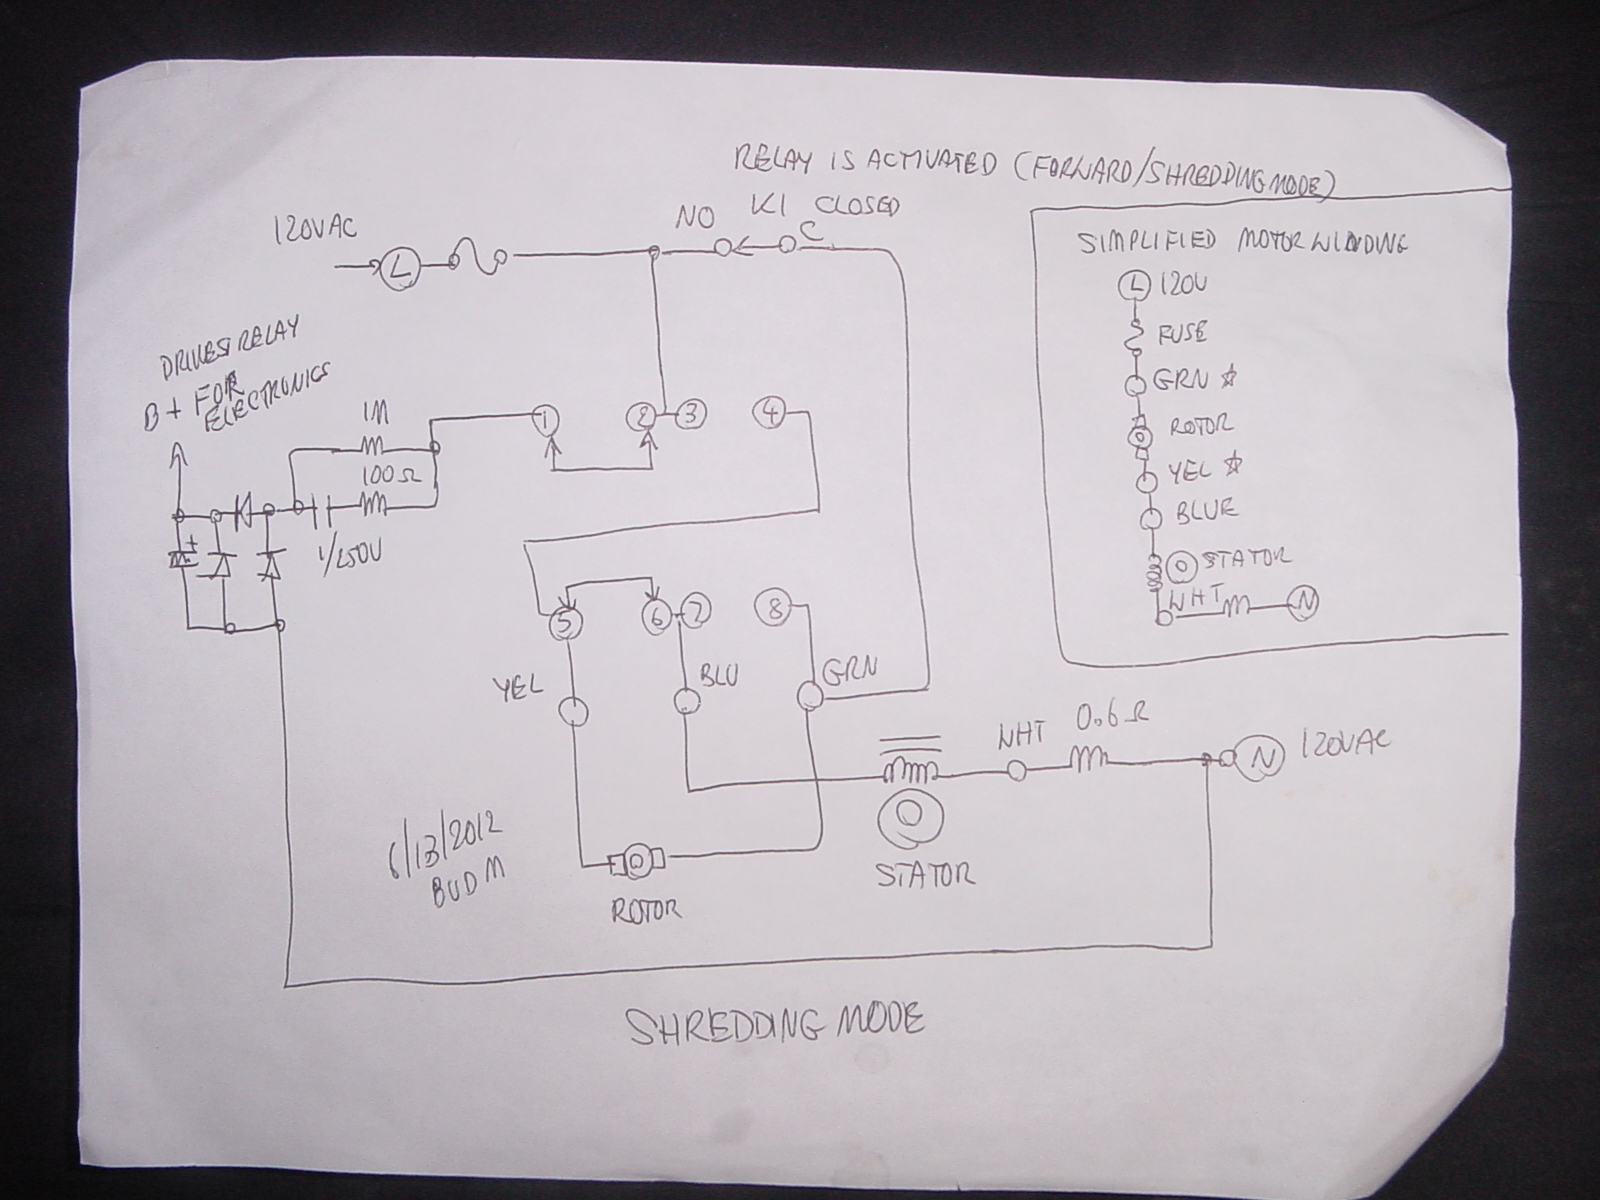 RELAY IS ACTIVATED (FORWARD/SHREDDING MODE)
120VAC
L
NO K1 CLOSED
C
DRIVES RELAY
B+ FOR
ELECTRONICS
1M
100Ω
+
1/250V
1 2 3 4
5 6 7 8
YEL
BLU
GRN
WHT 0.6Ω
N 120VAC
STATOR
ROTOR
6/13/2012
BUD M
SHREDDING MODE
SIMPLIFIED MOTOR WINDING
L 120V
FUSE
GRN ☆
ROTOR
YEL ☆
BLUE
STATOR
WHT N